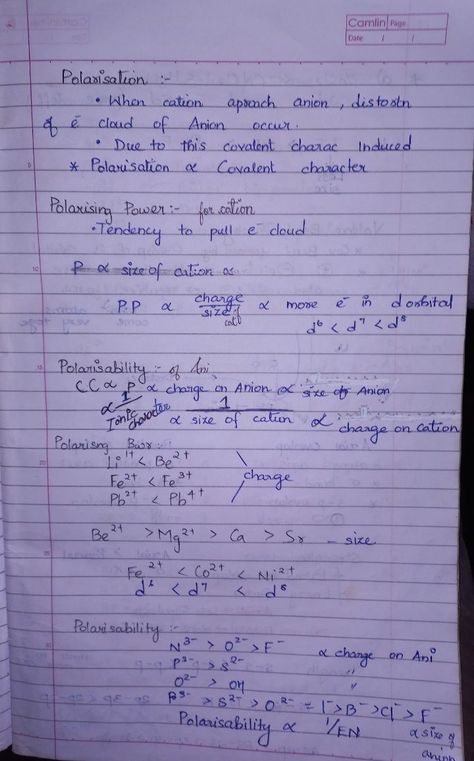 Camlin Page
Date / /
Polarisation :-
• When cation aproach anion, distostn
of e⁻ cloud of Anion occur.
• Due to this covalent charac Induced
* Polarisation ∝ Covalent character
Polarising Power :- for cation
• Tendency to pull e⁻ cloud
P ∝ size of cation ∝
P.P ∝ charge/size of cat ∝ more e⁻ in d orbital
d⁶ < d⁷ < d⁸
Polarisability :- of Ani
CC ∝ P ∝ charge on Anion ∝ size of Anion
∝ 1/Ionic character ∝ 1/size of cation ∝ charge on cation
Polarisng
Li¹⁺ < Be²⁺
Fe²⁺ < Fe³⁺ charge
Pb²⁺ < Pb⁴⁺
Be²⁺ > Mg²⁺ > Ca > Sr - size
Fe²⁺ < Co²⁺ < Ni²⁺
d⁶ < d⁷ < d⁸
Polarisability :-
N³⁻ > O²⁻ > F⁻ ∝ charge on Ani
P³⁻ > S²⁻ "
O²⁻ > OH "
P³⁻ > S²⁻ > O²⁻ = I⁻ > B⁻ > Cl⁻ > F⁻
Polarisability ∝ 1/EN ∝ size of
anion